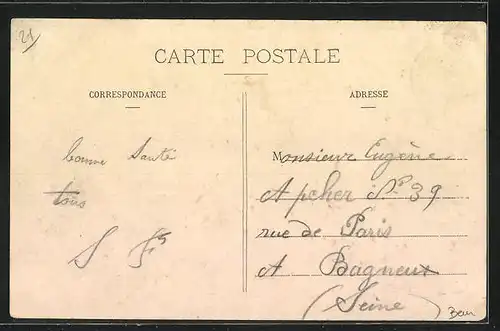 21
CARTE POSTALE
CORRESPONDANCE
ADRESSE
bonne Santé
tous
Monsieur Eugène
Apcher Nº 39
rue de Paris
A Bagneux
(Seine)